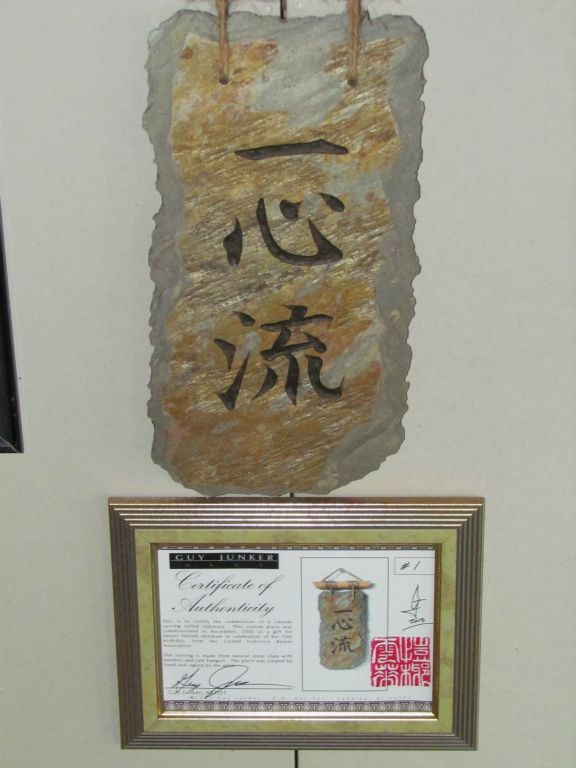 一
心
流
GUY JUNKER
MAUI
Certificate of
Authenticity
#1
This is to certify the commission of a custom
carving called Isshinryu. This custom piece was
commissioned in November, 2003 as a gift for
Sensei Harold Mitchum in celebration of his 70th
birthday, from the United Isshinryu Karate
Association.
The carving is made from natural stone slate with
bamboo and jute hangers. The piece was created by
hand and signed by the
Guy Junker, ARTIST
2003
一
心
流